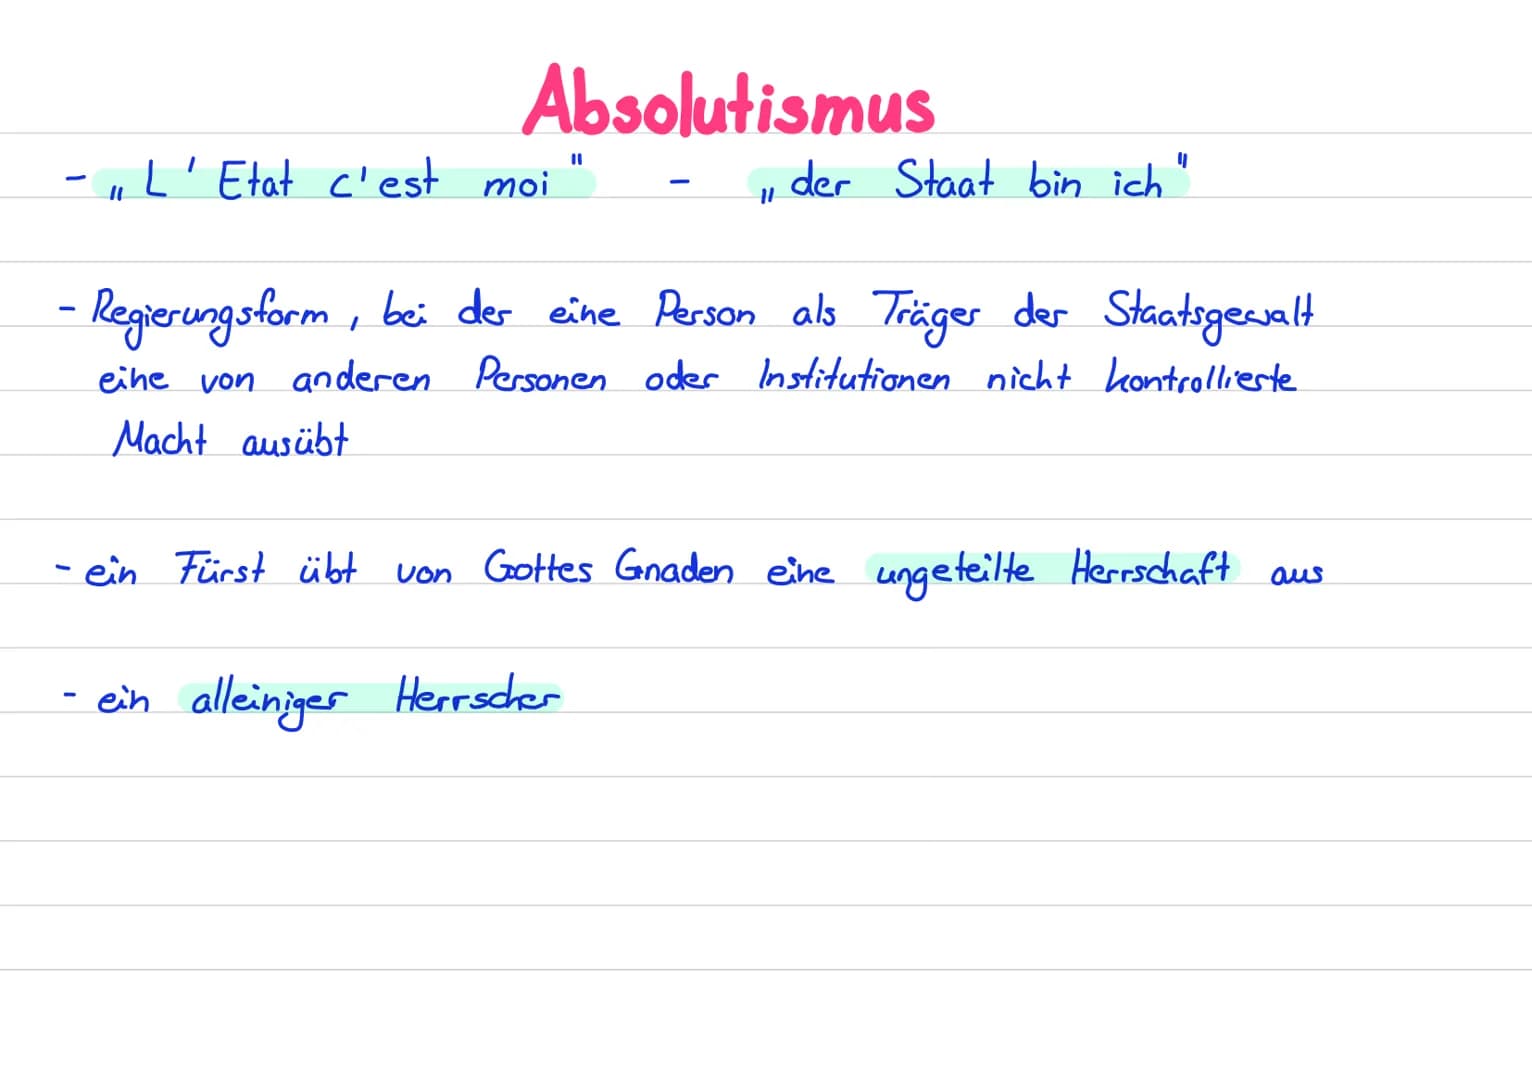 Absolutismus
- „L' Etat c'est moi" - „der Staat bin ich"
- Regierungsform, bei der eine Person als Träger der Staatsgewalt
eine von anderen Personen oder Institutionen nicht kontrollierte
Macht ausübt
- ein Fürst übt von Gottes Gnaden eine ungeteilte Herrschaft aus
- ein alleiniger Herrscher